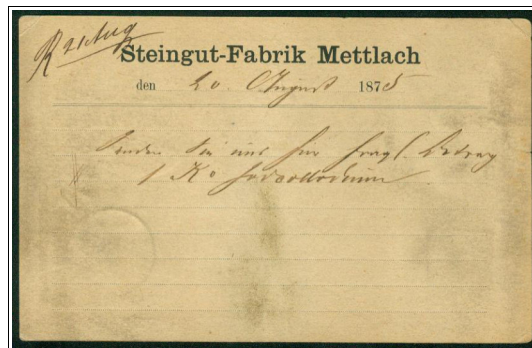 R 21 Aug
Steingut-Fabrik Mettlach
den 20. August 1875
Senden Sie uns für fragl. Betrag
1 Ko